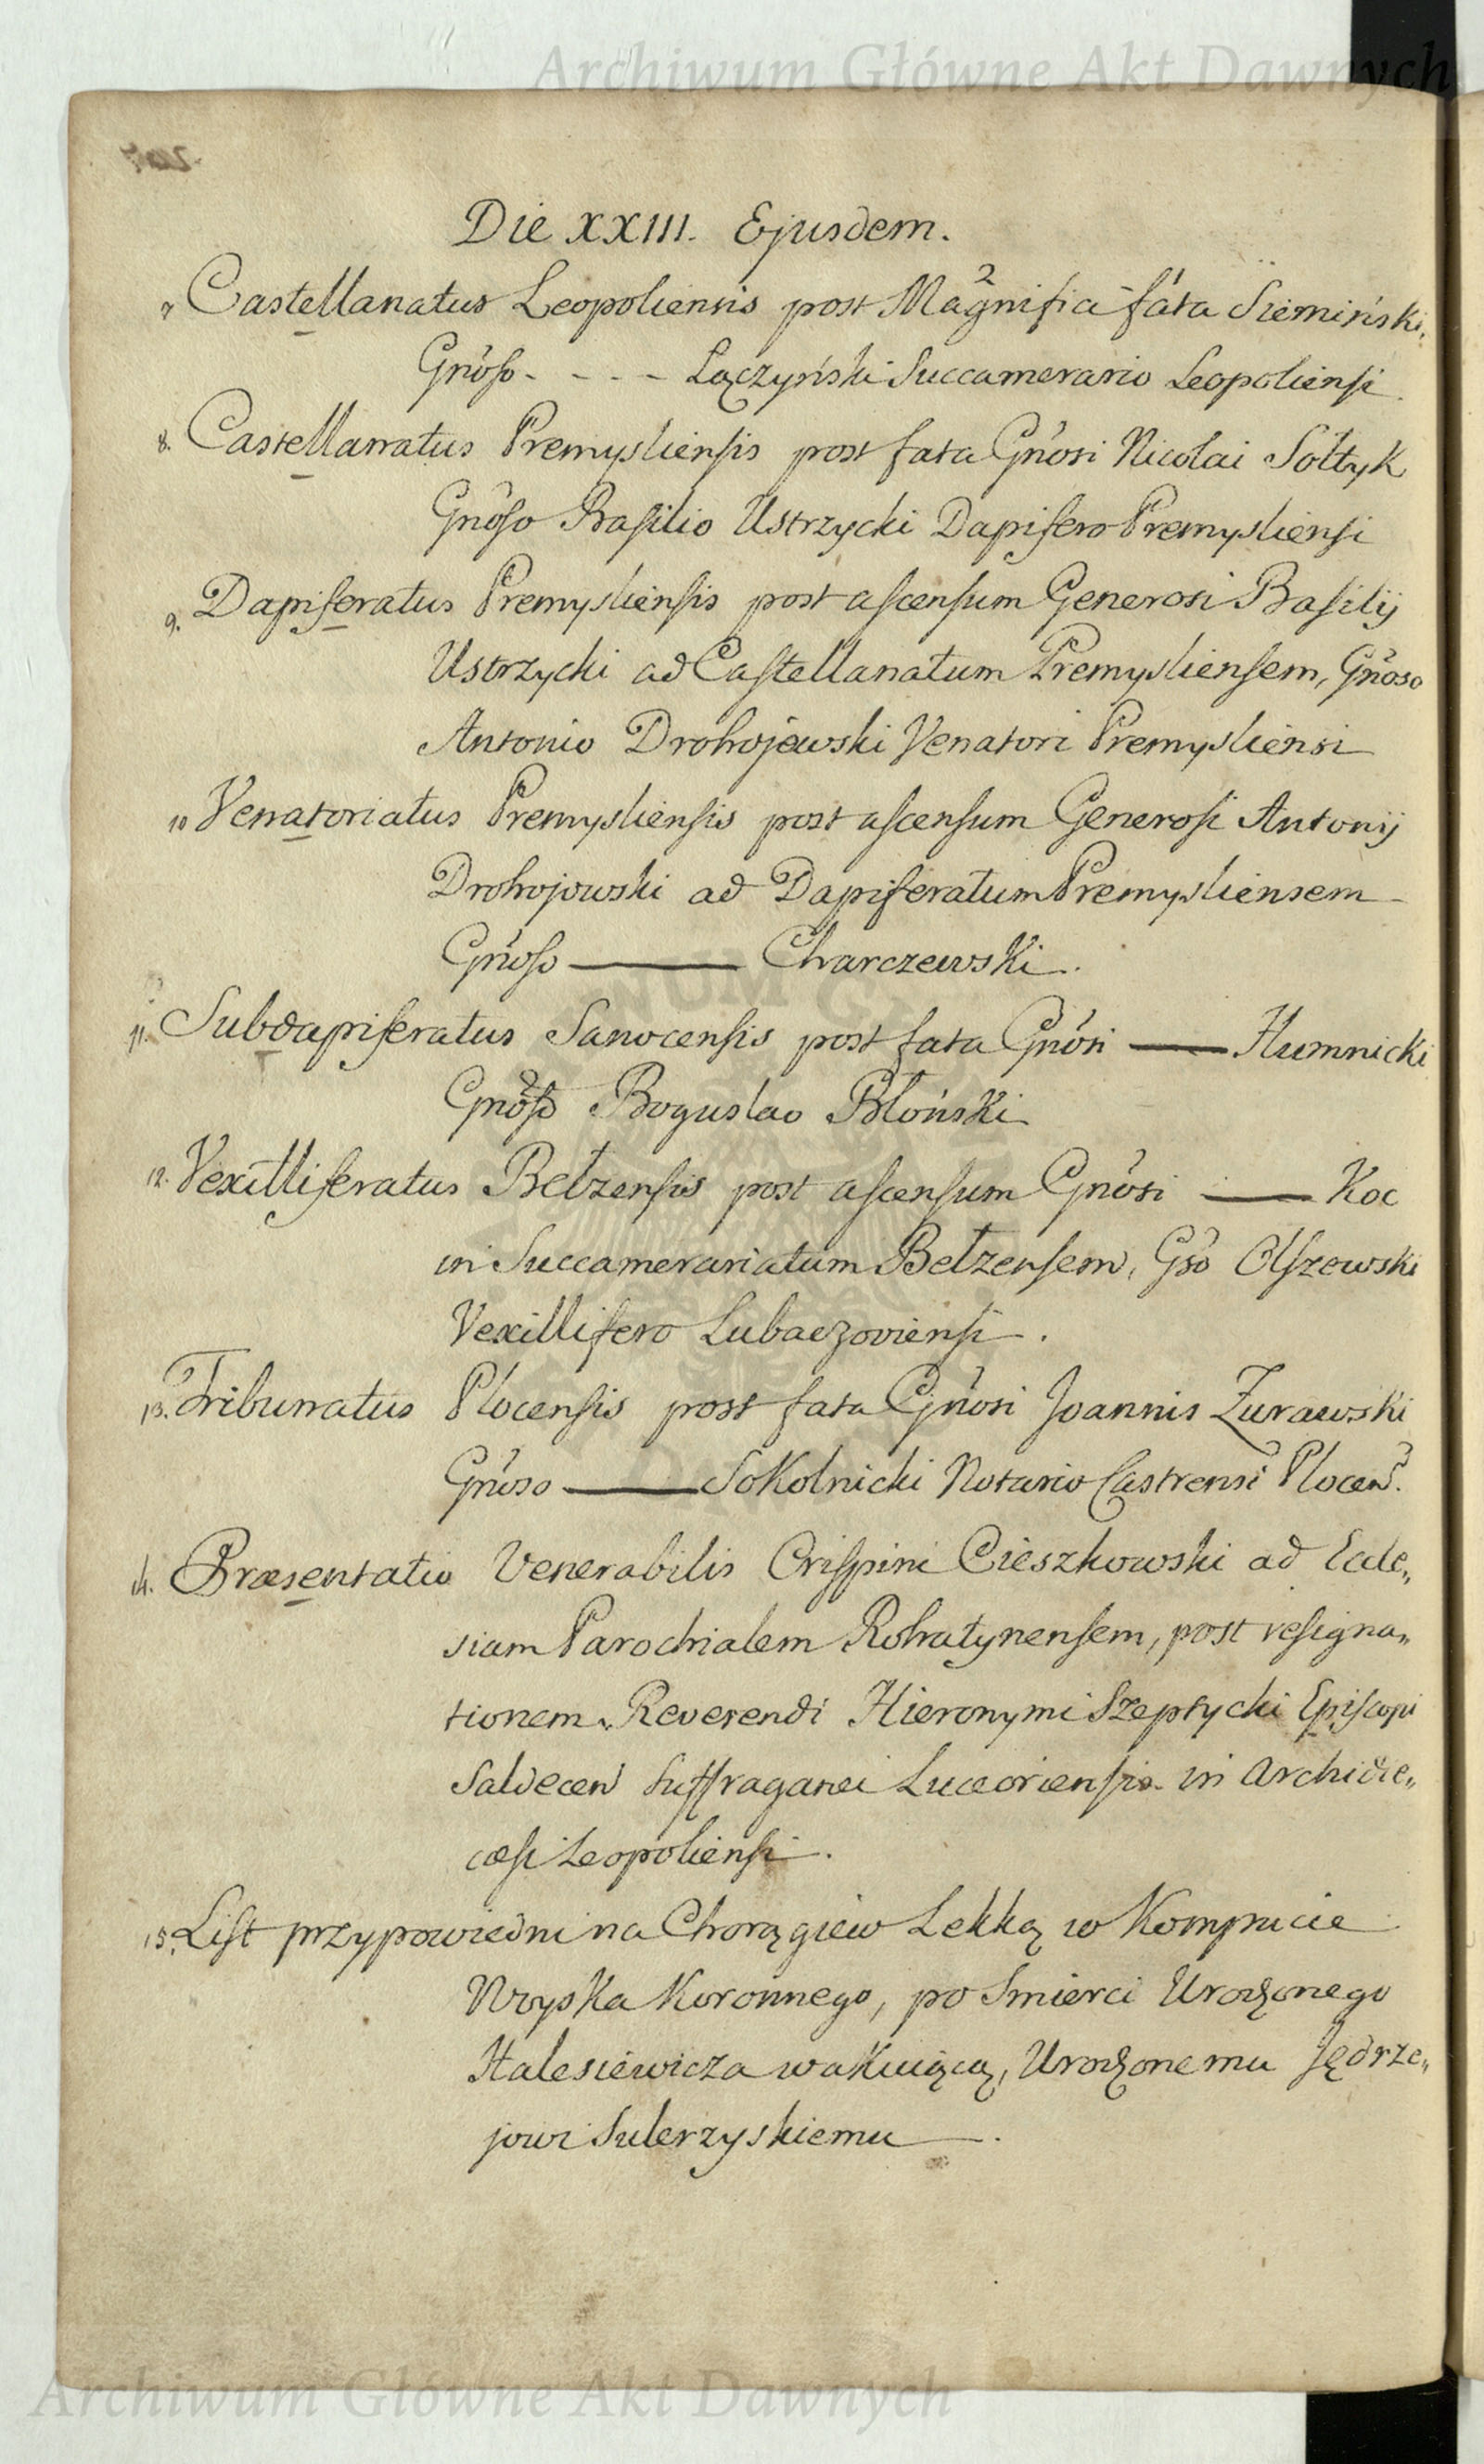 Archiwum Główne Akt Dawnych
Die XXIII. Ejusdem.
7 Castellanatus Leopoliensis post Magnifici fata Siemiński.
Gnoso - - - - Łączyński Succamerario Leopoliensi.
8. Castellanatus Premysliensis post fata Gnosi Nicolai Sołtyk
Gnoso Basilio Ustrzycki Dapifero Premysliensi
9. Dapiferatus Premysliensis post ascensum Generosi Basilij
Ustrzycki ad Castellanatum Premysliensem, Gnoso
Antonio Drohojewski Venatori Premysliensi
10 Venatoriatus Premysliensis post ascensum Generosi Antonij
Drohojowski ad Dapiferatum Premysliensem
Gnoso —— Charczewski.
11. Subdapiferatus Sanocensis post fata Gnosi —— Humnicki
Gnoso Boguslao Błoński
12. Vexilliferatus Bełzensis post ascensum Gnosi —— Koc
in Succamerariatum Bełzensem, Gso Olszewski
Vexillifero Lubaczoviensi.
13. Tribunatus Plocensis post fata Gnosi Joannis Zurawski
Gnoso —— Sokolnicki Notario Castrensi Plocen.
14. Præsentatio Venerabilis Crispini Cieszkowski ad Eccle„
siam Parochialem Rohatynensem, post resigna„
tionem Reverendi Hieronymi Szeptycki Episcopi
Saldecen Suffraganei Luceoriensis in Archidie„
cæsi Leopoliensi.
15. List przypowiedni na Chorągiew Lekką w Kompucie
Woyska Koronnego, po Smierci Urodzonego
Halesiewicza wakuiącą, Urodzonemu Jędrze„
jowi Sulerzyskiemu.
Archiwum Główne Akt Dawnych